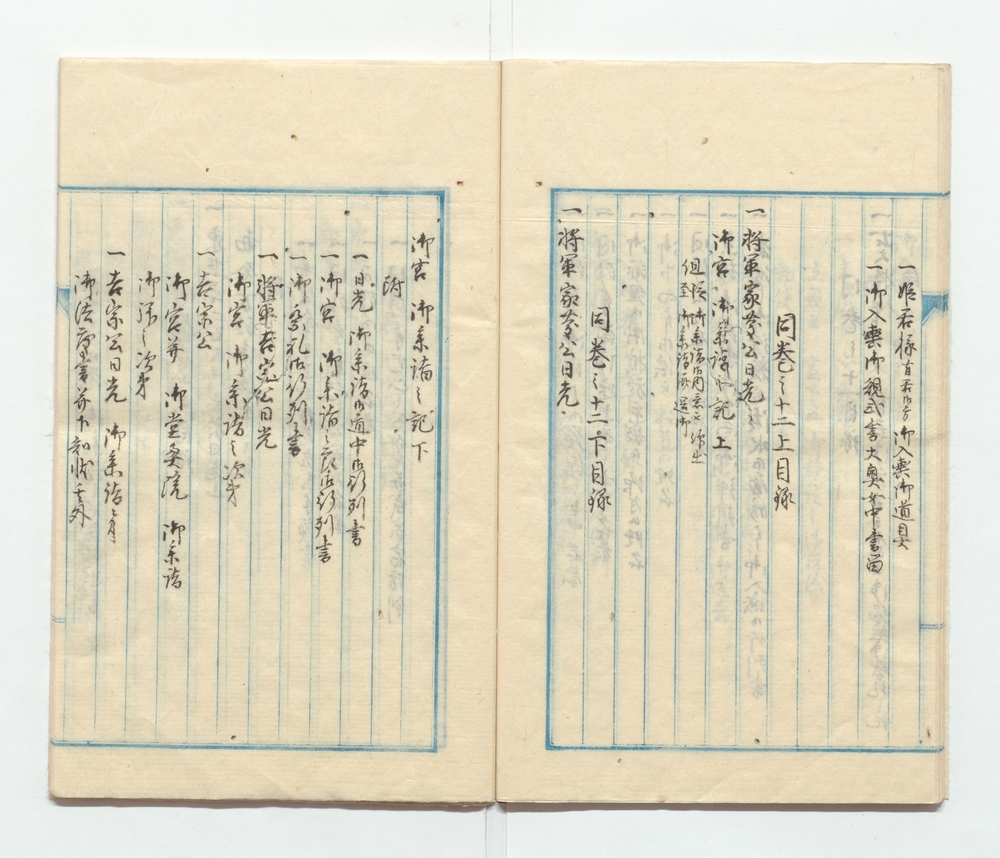 一姫君様 有君御方 御入輿御道具
一御入輿御規式書大奥女中書留
同巻之十二上目録
一将軍家慶公日光
御宮 御参詣之記上
但従御参詣御内意被仰出
至御参詣済還御
同巻之十二下目録
一将軍家慶公日光
御宮 御参詣之記下
附
一日光 御参詣御道中御行列書
一御宮 御参詣之節御行列書
一御祭礼御行列書
一将軍吉宗公日光
御宮 御参詣之次第
一吉宗公
御宮并 御堂奥院 御参詣
御拝之次第
一吉宗公日光 御参詣之節
御法度書并下知状其外